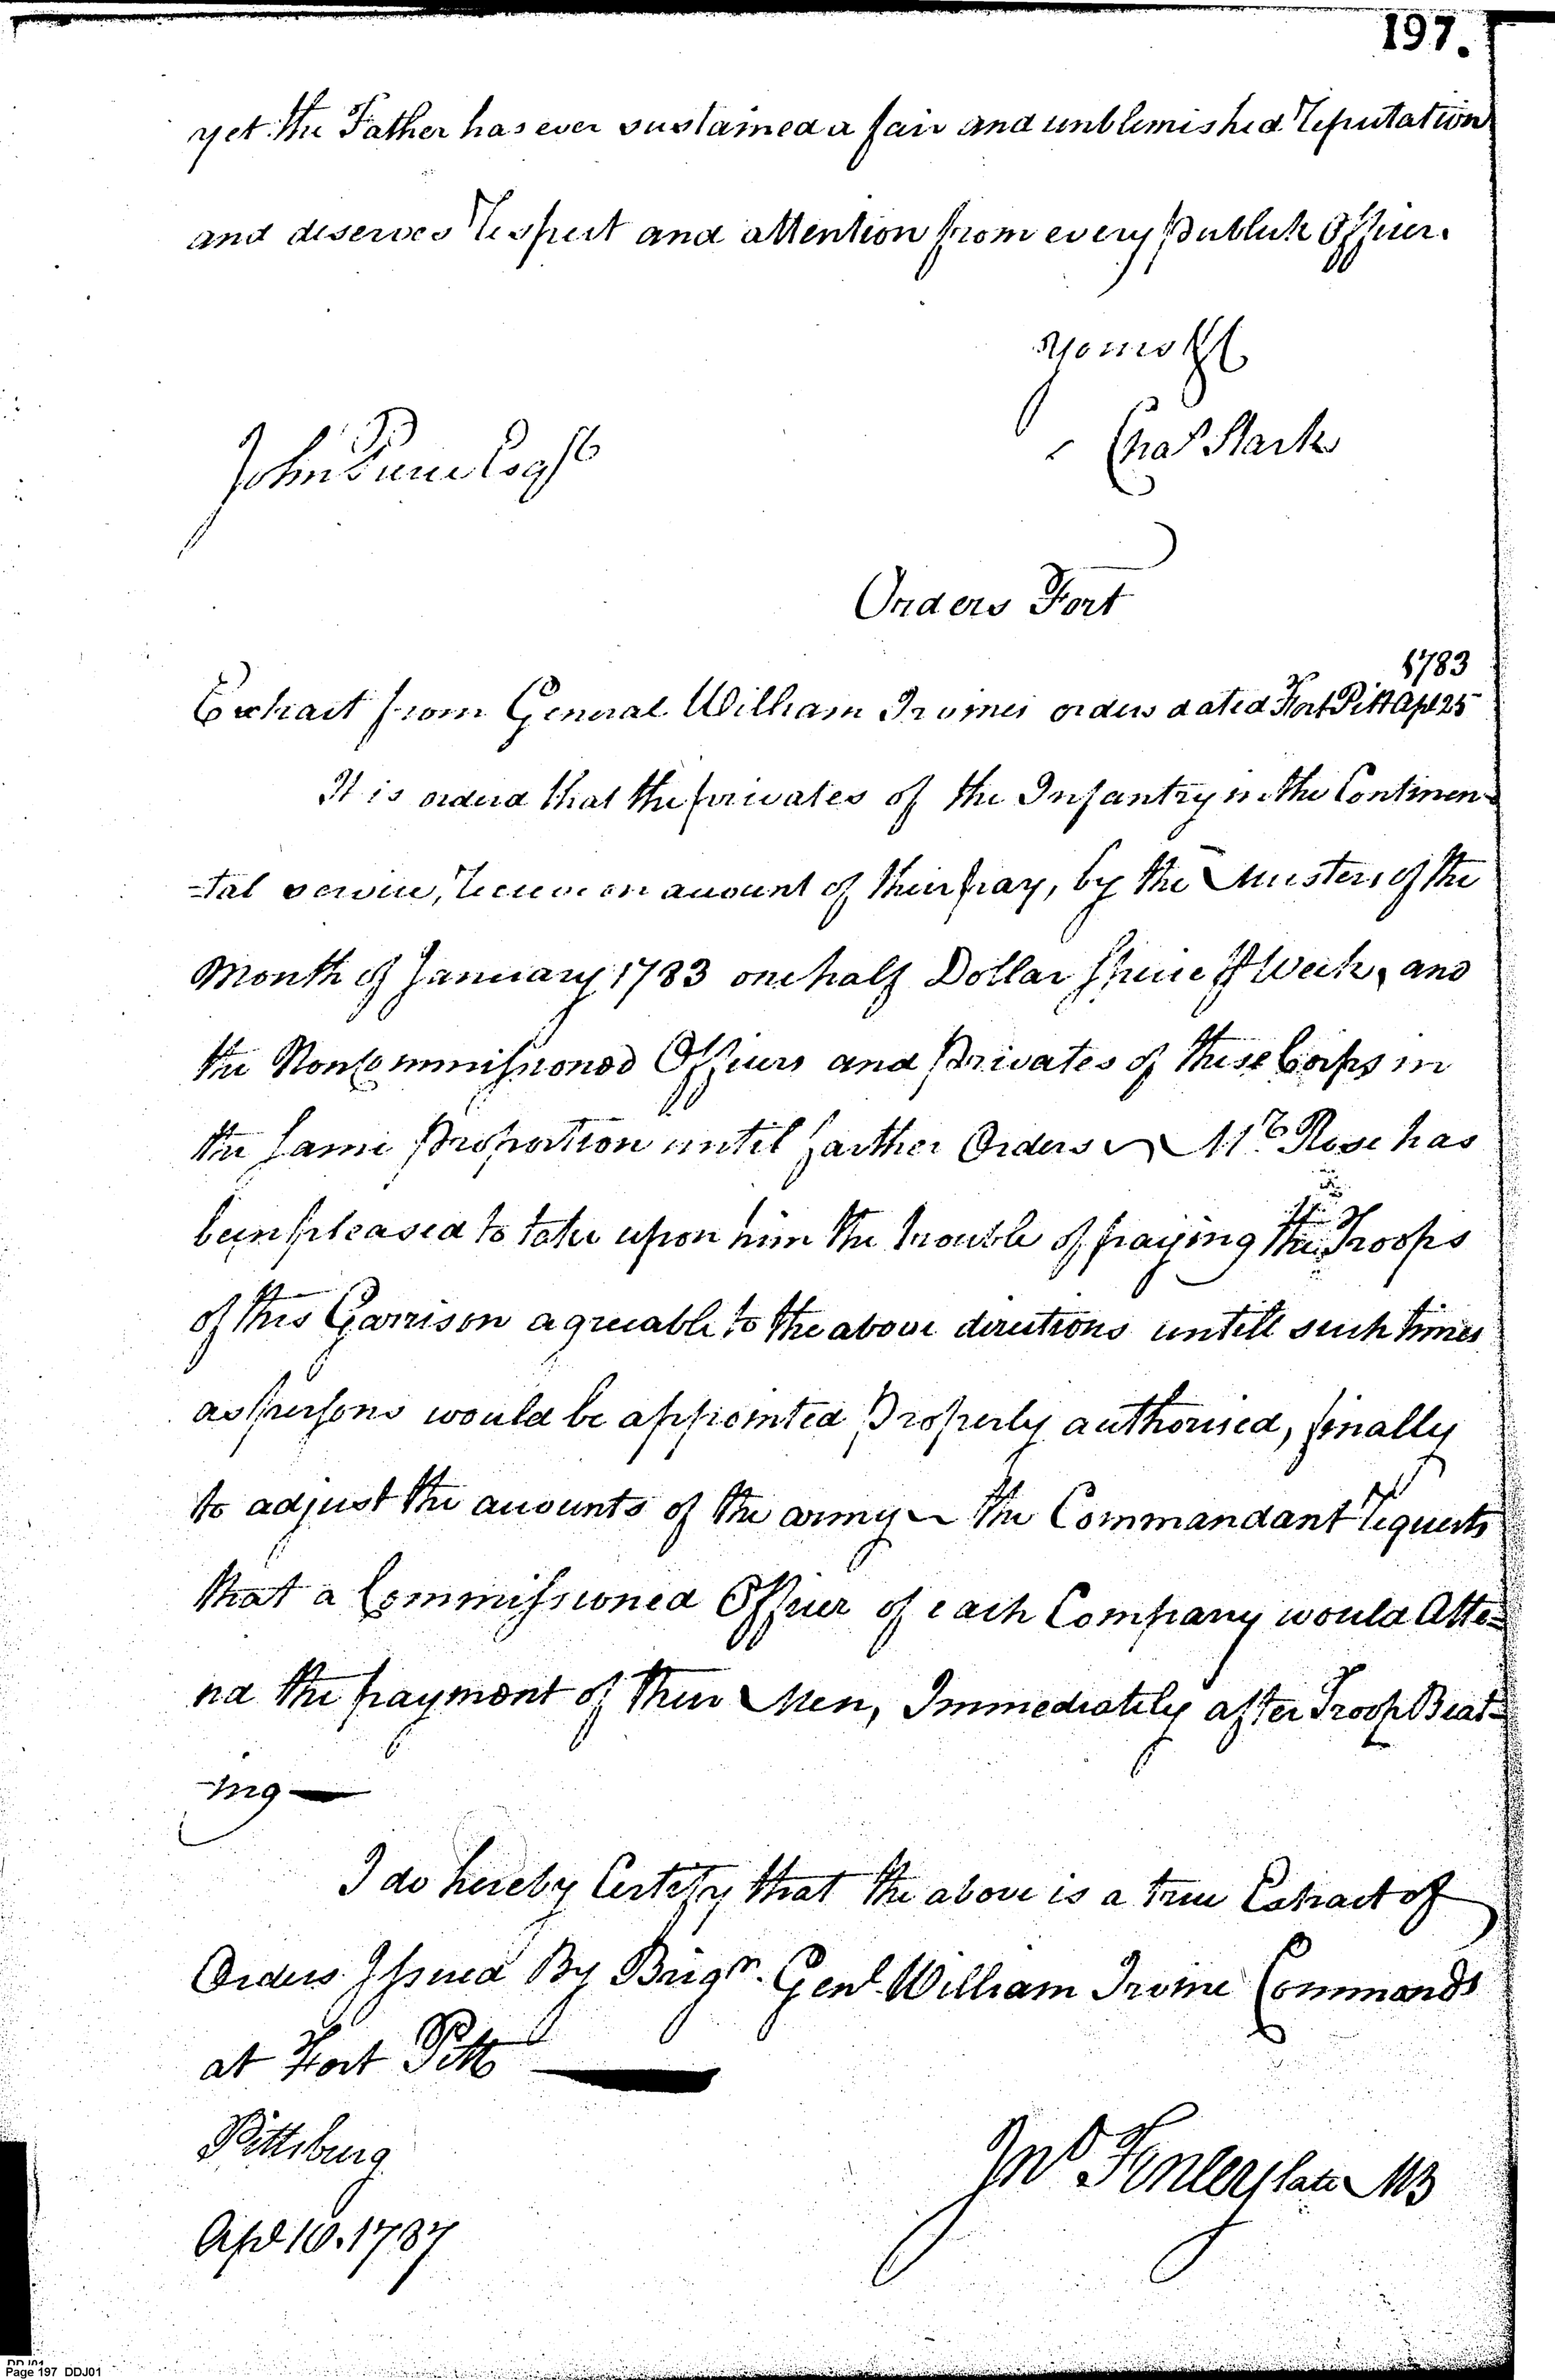 197.
yet the Father has ever sustained a fair and unblemished Reputation
and deserves Respect and attention from every publick Officer.
yours &c
John Esqr
Chas Stark
Orders Fort
1783
Extract from General William Irvines orders dated Fort Pitt Apl 25
It is orderd that the privates of the Infantry in the Continen-
-tal service, Receive on account of their pay, by the Musters of the
Month of January 1783 one half Dollar specie pr Week, and
the Noncommissioned Officers and privates of these Corps in
the same proportion until farther Orders ~ Mr. Rose has
been pleased to take upon him the trouble of paying the Troops
of this Garrison agreeable to the above directions untill such times
as persons would be appointed properly authorised, finally
to adjust the accounts of the army ~ the Commandant requests
that a Commissioned Officer of each Company would Atte=
nd the payment of their Men, Immediately after Troop Beat=
-ing —
I do hereby Certify that the above is a true Extract of
Orders Issued By Brigr. Genl William Irvine Commandt
at Fort Pitt —
Pittsburg
Jno Finley late MB
Apl 10. 1787
Page 197 DDJ01